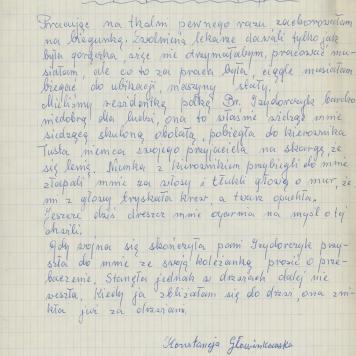 Pracując na tkalni pewnego razu zachorowałam
na biegunkę. Zwolnienia lekarze dawali tylko jak
była gorączka, więc nie otrzymałabym, pracować mu-
siałam, ale co to za praca była, ciągle musiałam
biegać do ubikacji, maszyny stały.
Mieliśmy rezydentkę polkę p. Izydorczyk bardzo
niedobrą dla ludzi, ona to właśnie widząc mnie
siedzącą skuloną obolałą, pobiegła do kierownika
Tusta niemca swojego przyjaciela na skargę, że
się lenię. Niunka z kierownikiem przybiegli do mnie
złapali mnie za włosy i tłukli głową o mur, że
mi z głowy tryskała krew, a twarz opuchła.
Jeszcze dziś dreszcz mnie ogarnia na myśl o tej
chwili.
Gdy wojna się skończyła pani Izydorczyk przy-
szła do mnie ze swoją koleżanką prosić o prze-
baczenie. Stanęła jednak w drzwiach dalej nie
weszła. Kiedy ja zbliżałam się do drzwi, ona zni-
kła już za drzwiami.
Konstancja Głowinkowska